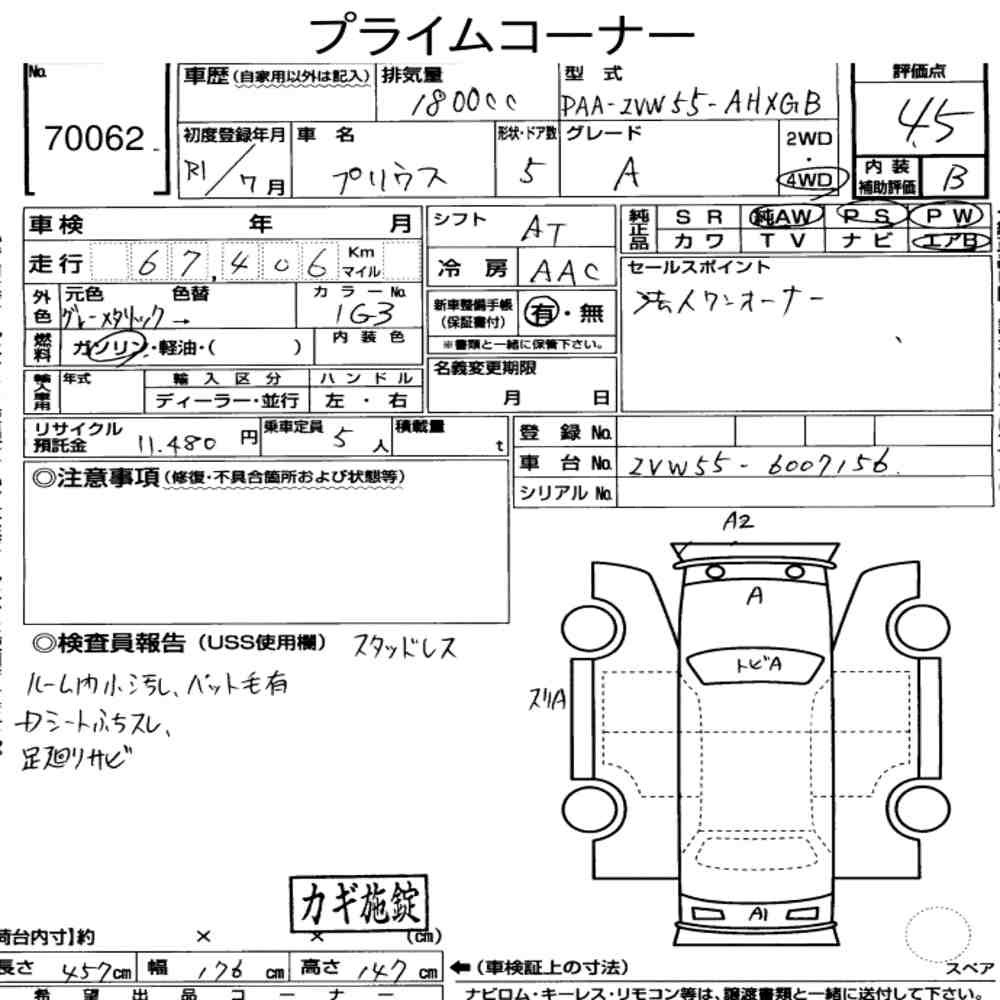 プライムコーナー
No. 70062
車歴(自家用以外は記入) 排気量 1800cc 型式 DAA-ZVW55-AHXGB 評価点 4.5
初度登録年月 R1/7月 車名 プリウス 形状・ドア数 5 グレード A 2WD・4WD 内装補助評価 B
車検 年 月 シフト AT 純正品 SR 純AW PS PW
カワ TV ナビ エアB
走行 67,406 Km マイル 冷房 AAC セールスポイント
外色 元色 グレーメタリック 色替 → カラーNo. 1G3 新車整備手帳(保証書付) 有・無 法人ワンオーナー
燃料 ガソリン・軽油・( ) 内装色 ※書類と一緒に保管下さい。
輸入車用 年式 輸入区分 ハンドル 名義変更期限
ディーラー・並行 左・右 月 日
リサイクル預託金 11,480円 乗車定員 5人 積載量 t 登録No.
車台No. ZVW55-6007156
シリアルNo.
◎注意事項(修復・不具合箇所および状態等)
A2
A
◎検査員報告(USS使用欄) スタッドレス
トビA
ルーム内小汚し、ペット毛有
ズリA
Dシートふちスレ、
足廻りサビ
カギ施錠
A1
荷台内寸】約 × × (cm)
長さ 457cm 幅 176cm 高さ 147cm ←(車検証上の寸法) スペア
希望出品コーナー ナビロム・キーレス・リモコン等は、譲渡書類と一緒に送付して下さい。